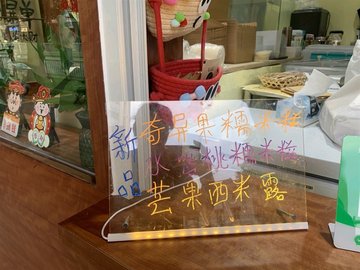 新品
奇异果糯米糍
水蜜桃糯米糍
芒果西米露